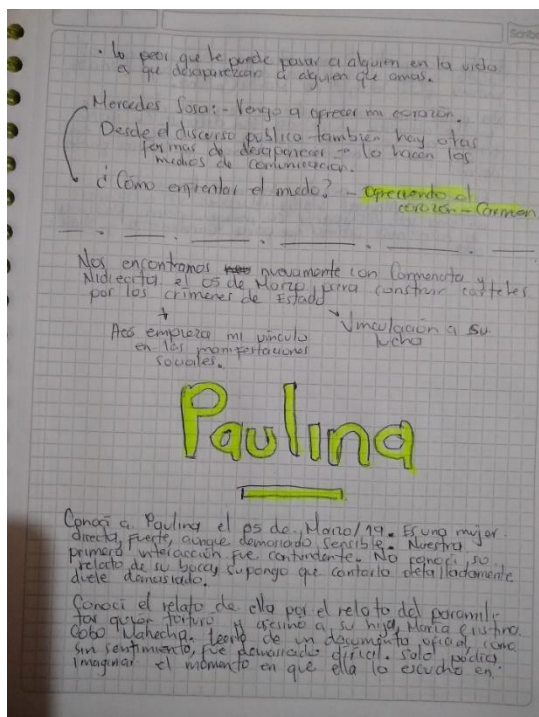 Scribe
• Lo peor que le puede pasar a alguien en la vida
es que desaparezcan a alguien que amas.
Mercedes Sosa: - Vengo a ofrecer mi corazón.
Desde el discurso público también hay otras
formas de desaparecer → lo hacen los
medios de comunicación.
¿Cómo enfrentar el miedo? - ofreciendo el
corazón - Carmen
Nos encontramos nuevamente con Carmencita y
Nidiecita el 05 de Marzo, para construir carteles
por los crímenes de Estado
Vinculación a su
lucha
Acá empieza mi vínculo
en las manifestaciones
sociales.
Paulina
Conocí a Paulina el 05 de Marzo/19. Es una mujer
directa, fuerte, aunque demasiado sensible. Nuestra
primera interacción fue contundente. No conocí su
relato de su boca, supongo que contarlo detalladamente
duele demasiado.
Conocí el relato de ella por el relato del paramili-
tar quien torturo y asesino a su hija, María Cristina
Cobo Mahecha. Leerlo de un documento oficial, como
sin sentimiento, fue demasiado difícil. Solo podía
imaginar el momento en que ella lo escucho en